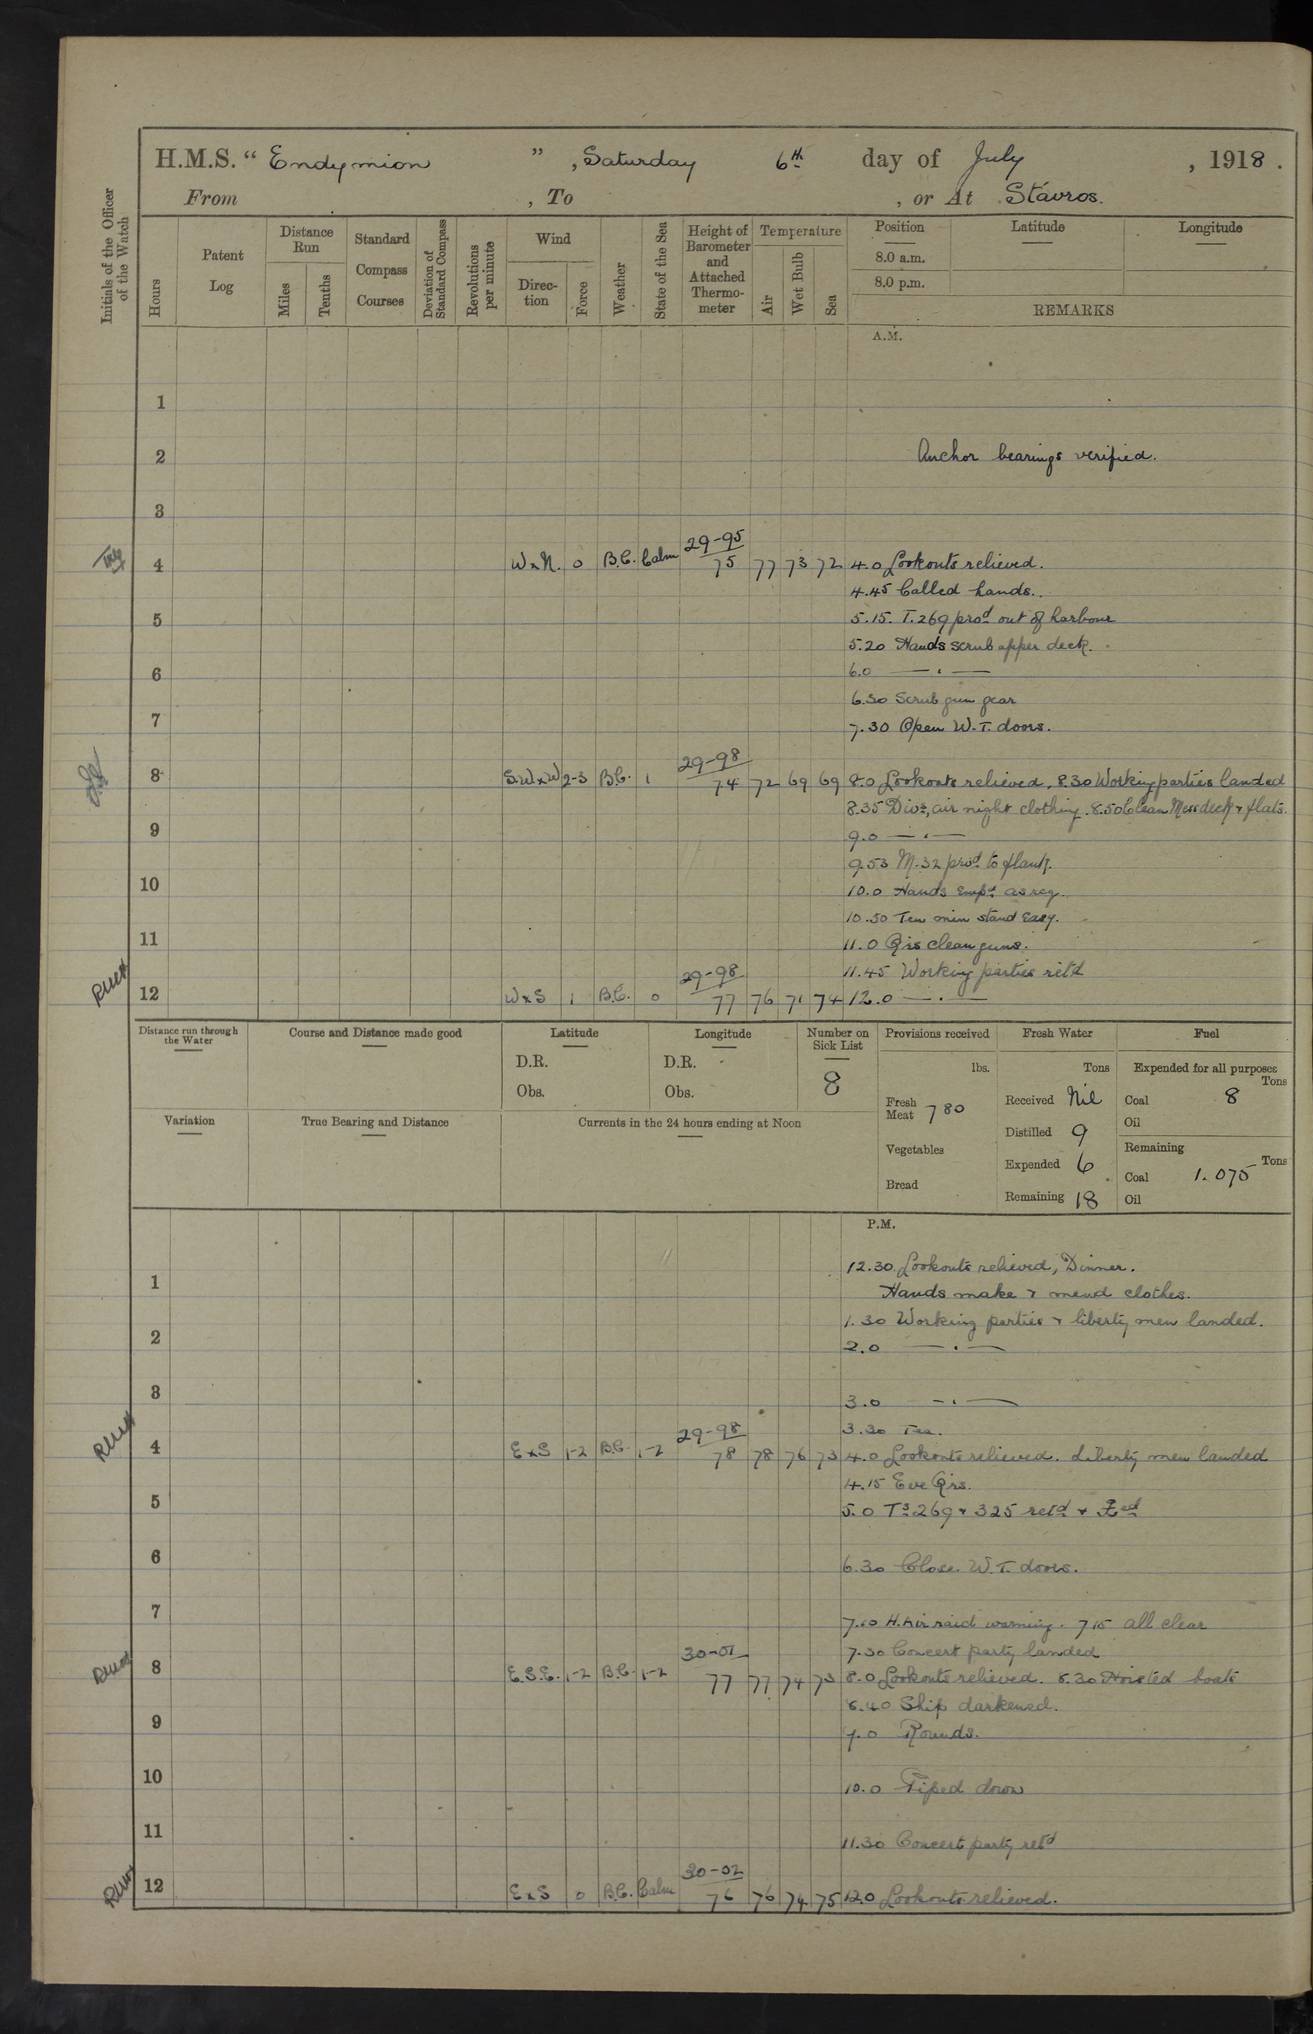 H.M.S. " Endymion " , Saturday 6th day of July , 1918 .
From , To , or At Stavros.
Initials of the Officer of the Watch
Hours
Patent Log
Distance Run
Miles
Tenths
Standard Compass Courses
Deviation of Standard Compass
Revolutions per minute
Wind
Direc- tion
Force
Weather
State of the Sea
Height of Barometer and Attached Thermo- meter
Temperature
Air
Wet Bulb
Sea
Position Latitude Longitude
8.0 a.m.
8.0 p.m.
REMARKS
A.M.
1
2 Anchor bearings verified.
3
29-95
4 W x N. 0 B.C. Calm 75 77 73 72 4.0 Lookouts relieved.
4.45 Called hands..
5 5.15. T.269 procd out of harbour
5.20 Hands scrub upper deck.
6 6.0 — . —
6.30 Scrub gun gear
7 7.30 Open W.T. doors.
29-98
8 S.W x W 2-3 B.C. 1 74 72 69 69 8.0 Lookouts relieved, 8.30 Working parties landed
8.35 Divs, air night clothing. 8.50 Clean Mess deck & flats.
9 9.0 — . —
9.53 M.32 procd to flank.
10 10.0 Hands Empd as req.
10.50 Ten min stand Easy.
11 11.0 Qrs clean guns.
29-98 11.45 Working parties ret'd
12 W x S 1 B.C. 0 77 76 71 74 12.0 — . —
Distance run through the Water
Course and Distance made good
Latitude
D.R.
Obs.
Longitude
D.R.
Obs.
Number on Sick List
8
Provisions received
lbs.
Fresh Meat 780
Vegetables
Bread
Fresh Water
Tons
Received Nil
Distilled 9
Expended 6
Remaining 18
Fuel
Expended for all purposes
Tons
Coal 8
Oil
Remaining
Tons
Coal 1.075
Oil
Variation
True Bearing and Distance
Currents in the 24 hours ending at Noon
P.M.
12.30 Lookouts relieved, Dinner.
1 Hands make & mend clothes.
1.30 Working parties & liberty men landed.
2 2.0 — . —
3 3.0 — . —
29-98 3.30 Tea.
4 E x S 1-2 B.C. 1-2 78 78 76 73 4.0 Lookouts relieved. Liberty men landed
4.15 Eve Qrs.
5 5.0 Ts 269 & 325 retd &
6 6.30 Close W.T. doors.
7 7.10 H. Air raid warning. 7.15 all clear
30-01 7.30 Concert party landed
8 E.S.E. 1-2 B.C. 1-2 77 77 74 73 8.0 Lookouts relieved. 8.30 Hoisted boats
8.40 Ship darkened.
9 9.0 Rounds.
10 10.0 Piped down
11 11.30 Concert party retd
30-02
12 E x S 0 B.C. Calm 76 76 74 75 12.0 Lookouts relieved.